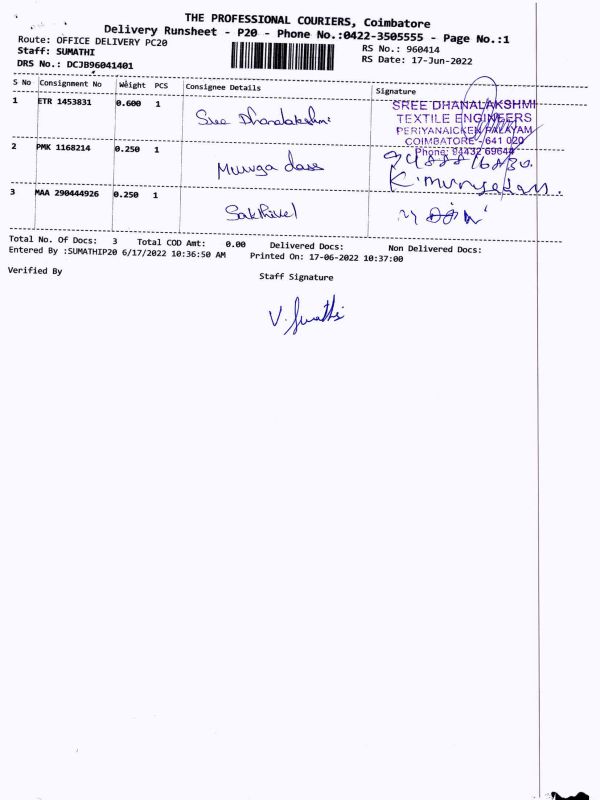 THE PROFESSIONAL COURIERS, Coimbatore
Delivery Runsheet - P20 - Phone No.:0422-3505555 - Page No.:1
Route: OFFICE DELIVERY PC20 RS No.: 960414
Staff: SUMATHI RS Date: 17-Jun-2022
DRS No.: DCJB96041401
S No Consignment No Weight PCS Consignee Details Signature
1 ETR 1453831 0.600 1 Sree Dhanalakshmi
SREE DHANALAKSHMI
TEXTILE ENGINEERS
PERIYANAICKEN PALAYAM
COIMBATORE - 641 020
Phone: 94432 69644
2 PMK 1168214 0.250 1 Muruga dass
K. Murugadass.
3 MAA 290444926 0.250 1 Sakthivel
Total No. Of Docs: 3 Total COD Amt: 0.00 Delivered Docs: Non Delivered Docs:
Entered By :SUMATHIP20 6/17/2022 10:36:50 AM Printed On: 17-06-2022 10:37:00
Verified By Staff Signature
V. Sumathi